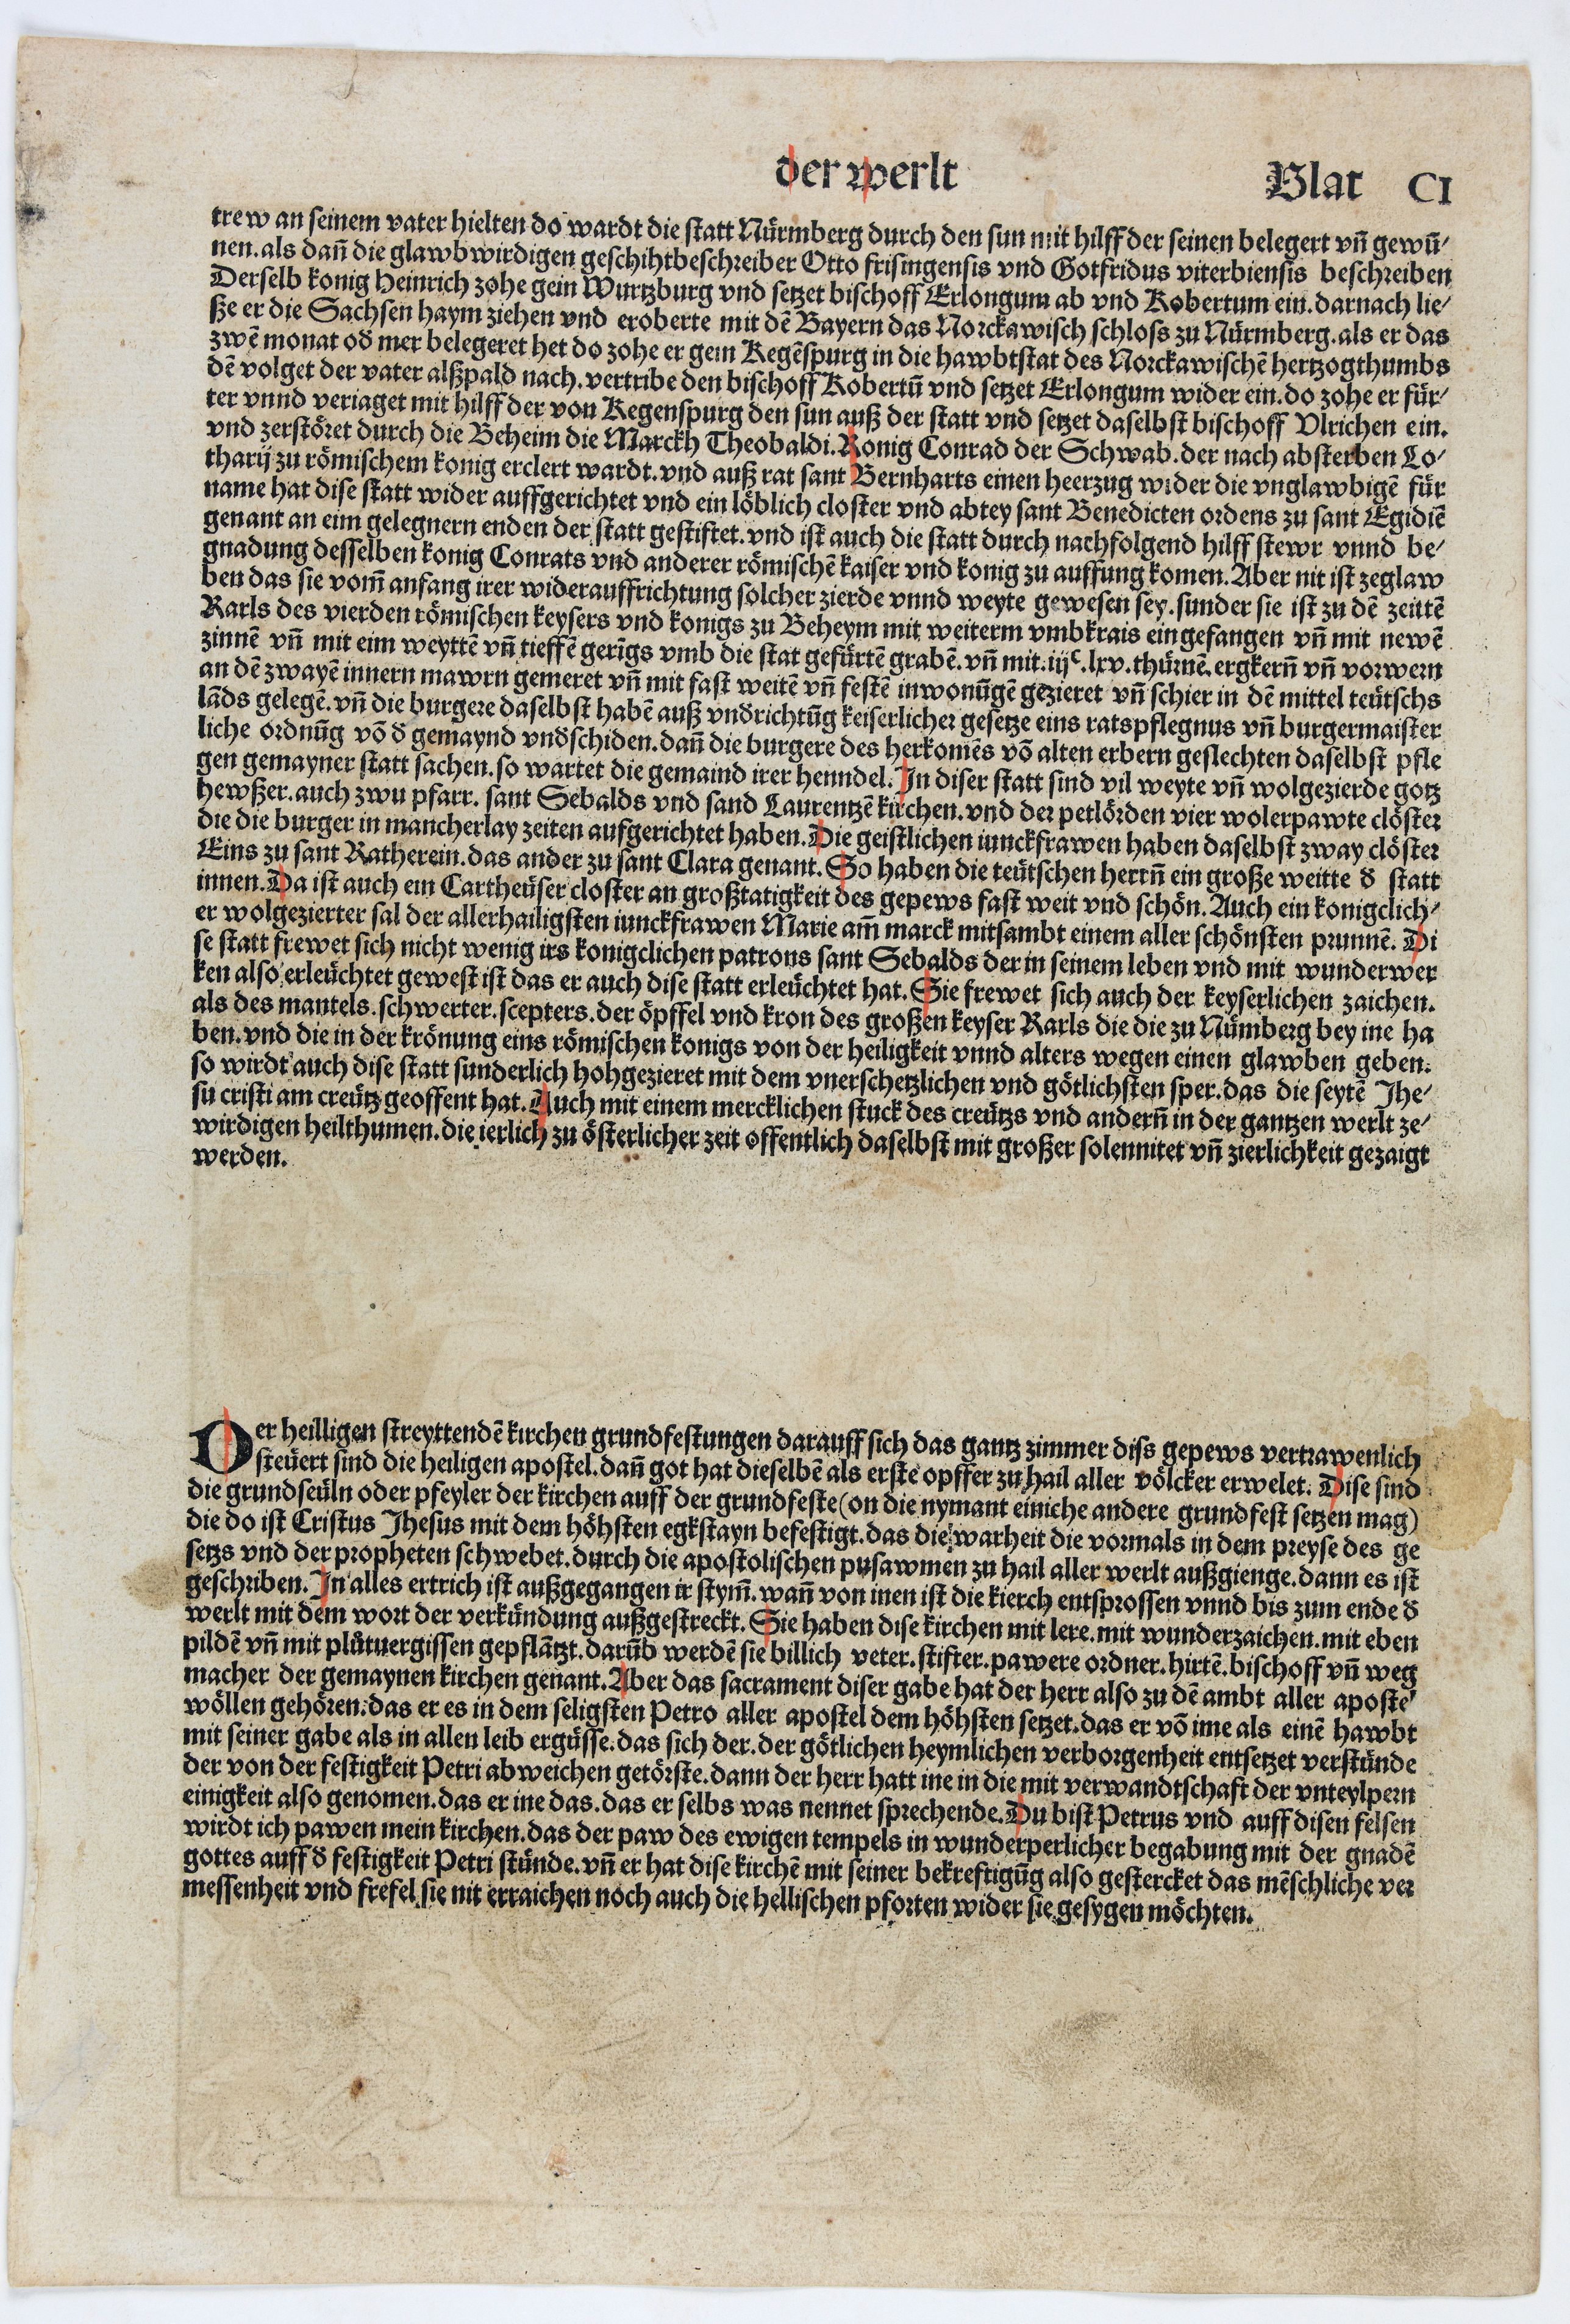 der werlt
Blat CI
trew an seinem vater hielten do wardt die statt Nürmberg durch den sun mit hilff der seinen belegert vñ gewū/
nen. als dañ die glawbwirdigen geschihtbeschreiber Otto frisingensis vnd Gotfridus viterbiensis beschreiben
Derselb konig Heinrich zohe gein Wurtzburg vnd setzet bischoff Erlongum ab vnd Robertum ein. darnach lie/
ße er die Sachsen haym ziehen vnd eroberte mit dē Bayern das Norckawisch schloss zu Nürmberg. als er das
zwē monat oď mer belegeret het do zohe er gein Regēspurg in die hawbtstat des Norckawischē hertzogthumbs
dē volget der vater alßpald nach. vertribe den bischoff Robertū vnd setzet Erlongum wider ein. do zohe er für/
ter vnnd veriaget mit hilff der von Regenspurg den sun auß der statt vnd setzet daselbst bischoff Vlrichen ein.
vnd zerstöret durch die Beheim die Marckh Theobaldi. Konig Conrad der Schwab. der nach absterben Lo/
tharij zu römischem konig erclert wardt. vnd auß rat sant Bernharts einen heerzug wider die vnglawbigē für
name hat dise statt wider auffgerichtet vnd ein löblich closter vnd abtey sant Benedicten ordens zu sant Egidiē
genant an eim gelegnern enden der statt gestiftet. vnd ist auch die statt durch nachfolgend hilff stewr vnnd be/
gnadung desselben konig Conrats vnd anderer römischē kaiser vnd konig zu auffung komen. Aber nit ist zeglaw
ben das sie vom̄ anfang irer widerauffrichtung solcher zierde vnnd weyte gewesen sey. sunder sie ist zu dē zeittē
Karls des vierden römischen keysers vnd konigs zu Beheym mit weiterm vmbkrais eingefangen vñ mit newē
zinnē vñ mit eim weyttē vñ tieffē gerīgs vmb die stat gefürtē grabē. vñ mit. iijᶜ. lxv. thürnē. ergkerñ vñ vorwern
an dē zwayē innern mawrn gemeret vñ mit fast weitē vñ festē inwonūgē gezieret vñ schier in dē mittel teütschs
lāds gelegē. vñ die burgere daselbst habē auß vnďrichtūg keiserlicher gesetze eins ratspflegnus vñ burgermaister
liche ordnūg vō ď gemaynd vnďschiden. dañ die burgere des herkomēs vō alten erbern geslechten daselbst pfle
gen gemayner statt sachen. so wartet die gemaind irer henndel. In diser statt sind vil weyte vñ wolgezierde gotz
hewßer. auch zwu pfarr. sant Sebalds vnd sand Laurentzē kirchen. vnd der petlörden vier wolerpawte clöster
die die burger in mancherlay zeiten aufgerichtet haben. Die geistlichen iunckfrawen haben daselbst zway clöster
Eins zu sant Katherein. das ander zu sant Clara genant. So haben die teütschen herrñ ein große weitte ď statt
innen. Da ist auch ein Cartheüser closter an großtatigkeit des gepews fast weit vnd schön. Auch ein koniglich/
er wolgezierter sal der allerhailigsten iunckfrawen Marie am̄ marck mitsambt einem aller schönsten prunnē. Di
se statt frewet sich nicht wenig irs konigclichen patrons sant Sebalds der in seinem leben vnd mit wunderwer
ken also erleüchtet gewest ist das er auch dise statt erleüchtet hat. Sie frewet sich auch der keyserlichen zaichen.
als des mantels. schwerter. scepters. der öpffel vnd kron des großen keyser Karls die die zu Nümberg bey ine ha
ben. vnd die in der krönung eins römischen konigs von der heiligkeit vnnd alters wegen einen glawben geben.
so wirdt auch dise statt sunderlich hohgezieret mit dem vnerschetzlichen vnd götlichsten sper. das die seytē Jhe/
su cristi am creütz geoffent hat. Auch mit einem mercklichen stuck des creützs vnd anderñ in der gantzen werlt ze/
wirdigen heilthumen. die ierlich zu österlicher zeit offentlich daselbst mit großer solennitet vñ zierlichkeit gezaigt
werden.
Der heilligen streyttendē kirchen grundfestungen darauff sich das gantz zimmer diss gepews vertrawenlich
steüert sind die heiligen apostel. dañ got hat dieselbē als erste opffer zu hail aller völcker erwelet. Dise sind
die grundseüln oder pfeyler der kirchen auff der grundfeste (on die nymant einiche andere grundfest setzen mag)
die do ist Cristus Jhesus mit dem höhsten egkstayn befestigt. das die warheit die vormals in dem preyse des ge
setzs vnd der propheten schwebet. durch die apostolischen pusawmen zu hail aller werlt außgienge. dann es ist
geschriben. In alles ertrich ist außgegangen ir stym̄. wañ von inen ist die kierch entsprossen vnnd bis zum ende ď
werlt mit dem wort der verkündung außgestreckt. Sie haben dise kirchen mit lere. mit wunderzaichen. mit eben
pildē vñ mit plůtuergissen gepflātzt. darūb werdē sie billich veter. stifter. pawere ordner. hirtē. bischoff vñ weg
macher der gemaynen kirchen genant. Aber das sacrament diser gabe hat der herr also zu dē ambt aller aposte'
wöllen gehören: das er es in dem seligsten Petro aller apostel dem höhsten setzet. das er vō ime als einē hawbt
mit seiner gabe als in allen leib ergüsse. das sich der. der götlichen heymlichen verborgenheit entsetzet verstünde
der von der festigkeit Petri abweichen getörste. dann der herr hatt ine in die mit verwandtschaft der vnteylpern
einigkeit also genomen. das er ine das. das er selbs was nennet sprechende. Du bist Petrus vnd auff disen felsen
wirdt ich pawen mein kirchen. das der paw des ewigen tempels in wunderperlicher begabung mit der gnadē
gottes auff ď festigkeit Petri stünde. vñ er hat dise kirchē mit seiner bekreftigūg also gestercket das mēschliche ver
messenheit vnd frefel sie nit erraichen noch auch die hellischen pforten wider sie gesygen möchten.